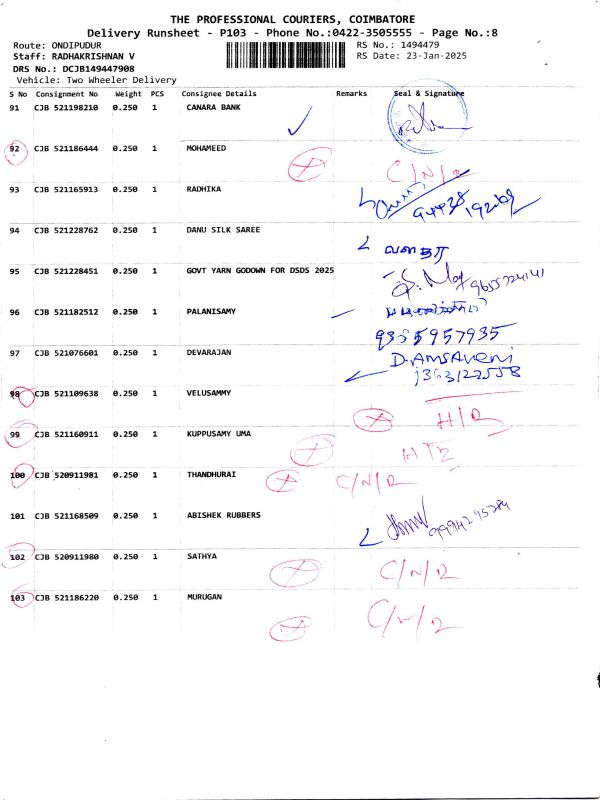 THE PROFESSIONAL COURIERS, COIMBATORE
Delivery Runsheet - P103 - Phone No.:0422-3505555 - Page No.:8
Route: ONDIPUDUR RS No.: 1494479
Staff: RADHAKRISHNAN V RS Date: 23-Jan-2025
DRS No.: DCJB149447908
Vehicle: Two Wheeler Delivery
S No Consignment No Weight PCS Consignee Details Remarks Seal & Signature
91 CJB 521198210 0.250 1 CANARA BANK
92 CJB 521186444 0.250 1 MOHAMEED C/N/R
93 CJB 521165913 0.250 1 RADHIKA
94 CJB 521228762 0.250 1 DANU SILK SAREE
95 CJB 521228451 0.250 1 GOVT YARN GODOWN FOR DSDS 2025 9655724141
96 CJB 521182512 0.250 1 PALANISAMY
9365957935
97 CJB 521076601 0.250 1 DEVARAJAN D.AMSAVENI
98 CJB 521109638 0.250 1 VELUSAMMY
99 CJB 521160911 0.250 1 KUPPUSAMY UMA
100 CJB 520911981 0.250 1 THANDHURAI C/N/R
101 CJB 521168509 0.250 1 ABISHEK RUBBERS
102 CJB 520911980 0.250 1 SATHYA C/N/R
103 CJB 521186220 0.250 1 MURUGAN C/N/R